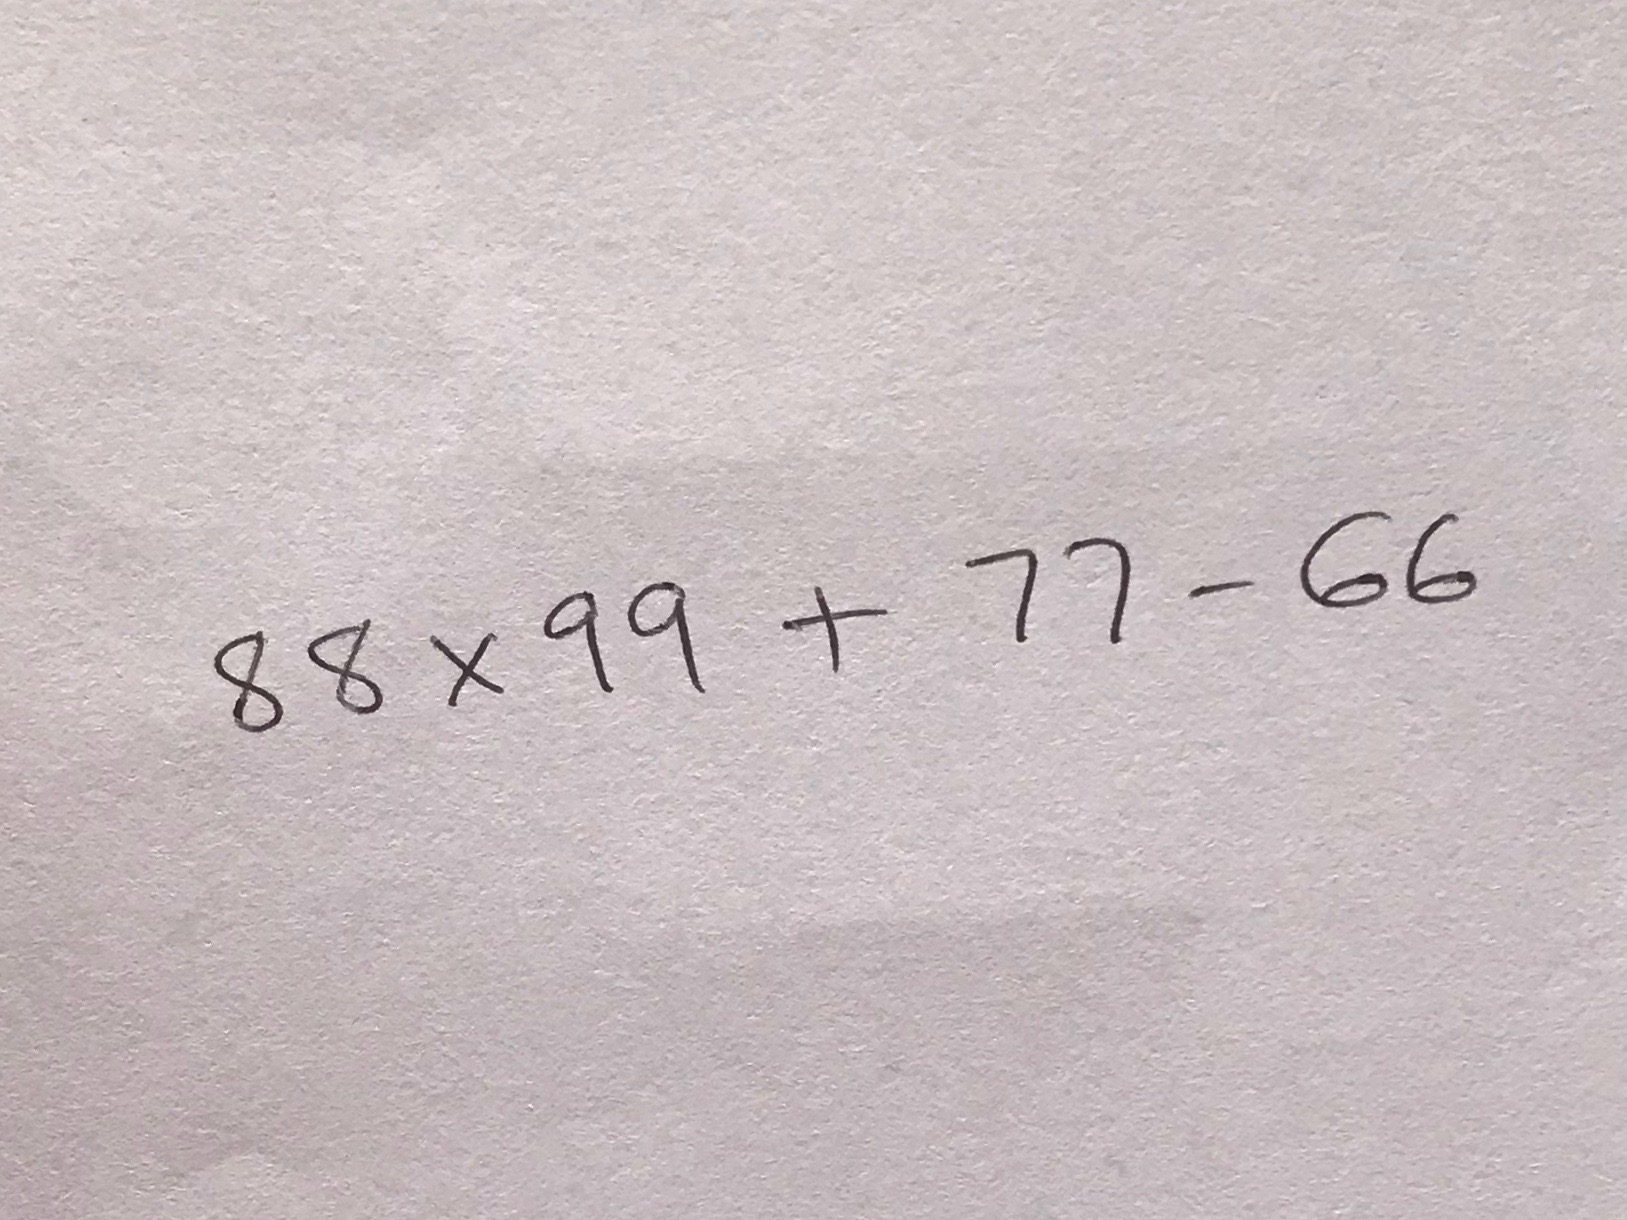 88 × 99 + 77 - 66